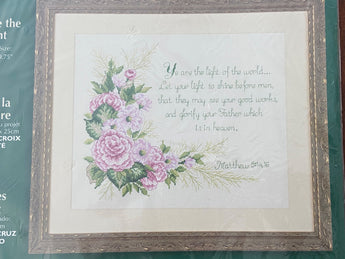 e the
nt
Size:
9.75"
la
re
u projet
x 25cm
CROIX
TÉ
es
ado:
m
CRUZ
O
Ye are the light of the world...
Let your light so shine before men,
that they may see your good works,
and glorify your Father which
is in heaven.
Matthew 5:14,16